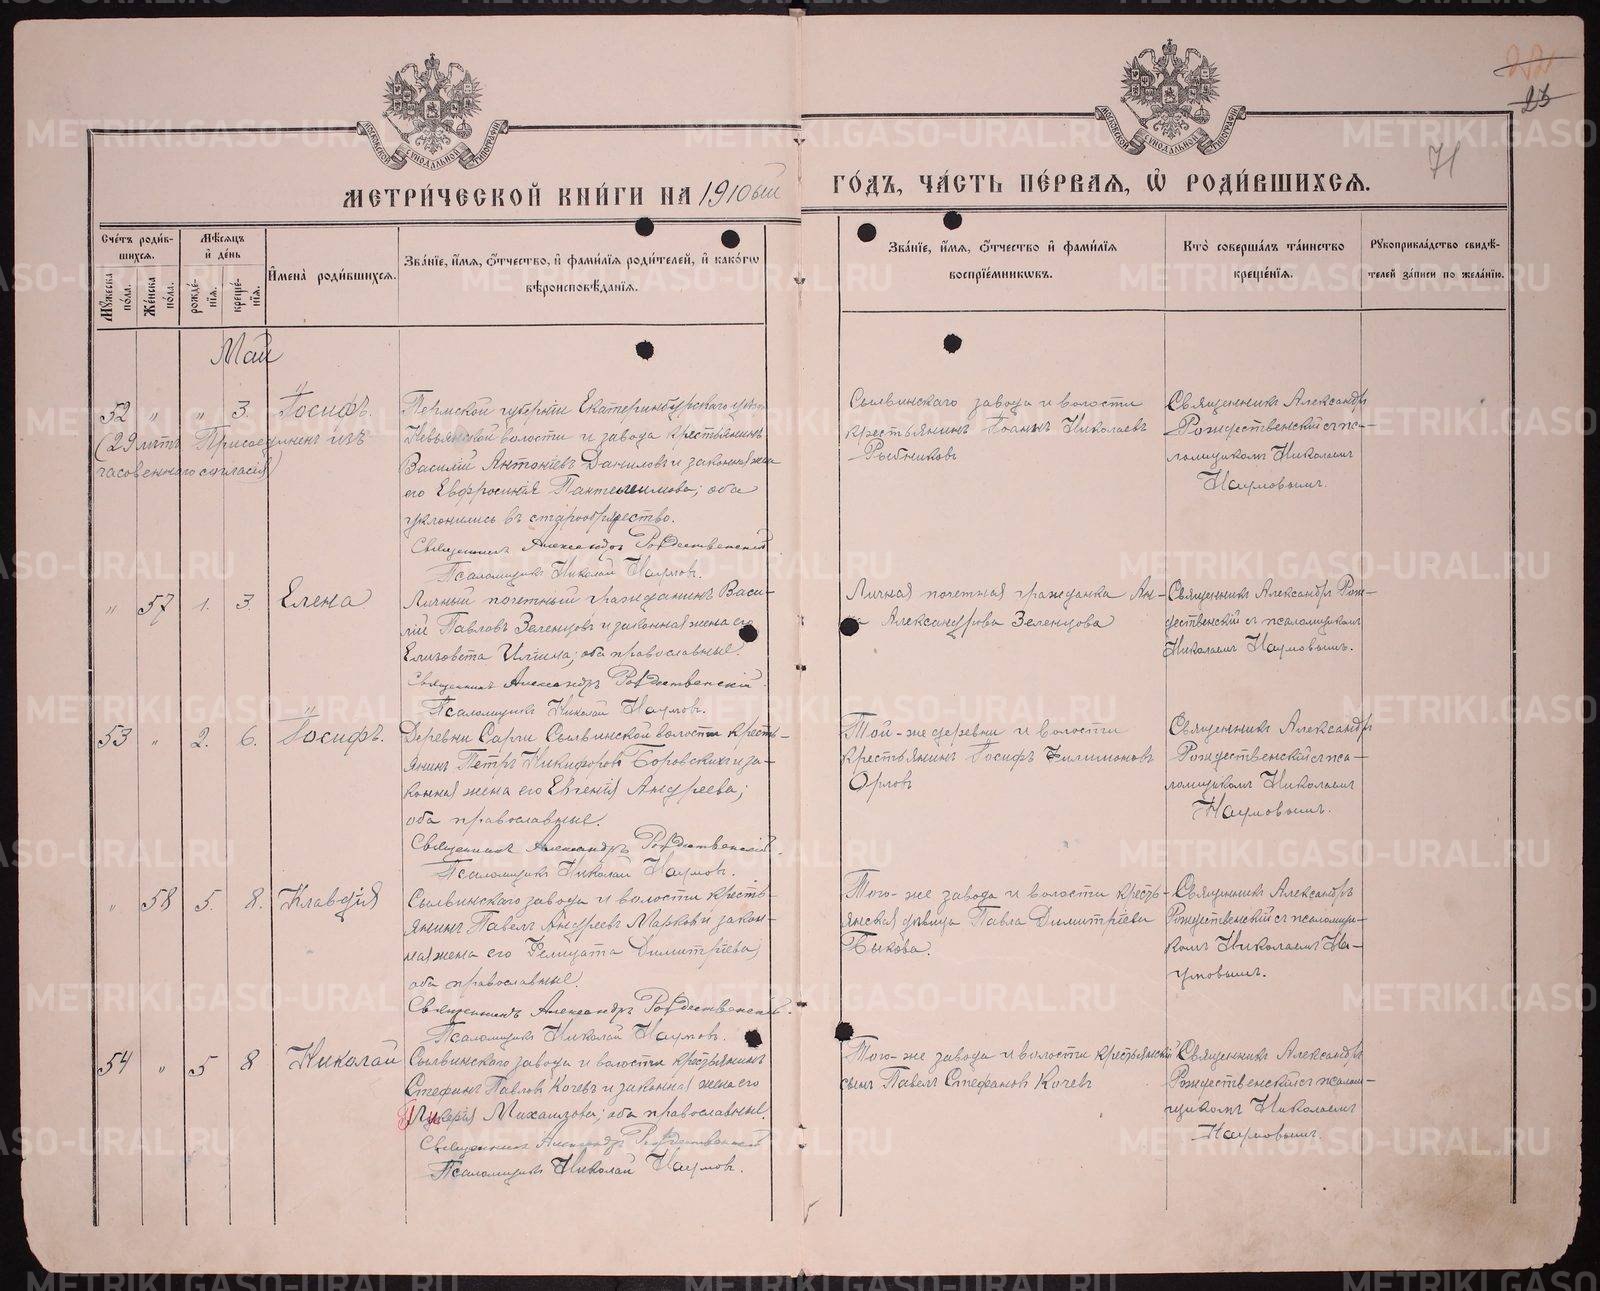 МЕТРИ́ЧЕСКОЙ КНИ́ГИ НА 1910ый ГО́ДЪ, ЧА́СТЬ ПЕ́РВАЯ, Ѡ҆ РОДИ́ВШИХСЯ.
71
Сче́тъ роди́вшихся.
Мꙋ́жеска по́ла.
Же́нска по́ла.
Мѣ́сяцъ и҆ де́нь
рожде́нїя.
креще́нїя.
И҆мена̀ роди́вшихся.
Зва́нїе, и҆́мя, ѻ҆́тчество, и҆ фами́лїя роди́телей, и҆ како́гѡ
вѣроисповѣ́данїя.
Зва́нїе, и҆́мя, ѻ҆́тчество и҆ фами́лїя
воспрїе́мникѡвъ.
Кто̀ соверша́лъ та́инство
креще́нїя.
Рꙋкоприкла́дство свидѣ́телей за́писи по жела́нїю.
Май
52 " " 3. Іосифъ.
(29 лѣтъ Присоединенъ изъ
часовеннаго согласія)
Пермской губерніи Екатеринбургского уѣзда
Невьянской волости и завода крестьянинъ
Василій Антоніевъ Даниловъ и законная жена
его Евфросинія Пантелеимова; оба
уклонились въ старообрядество.
Священникъ Александръ Рождественскій
Псаломщикъ Николай Наумовъ.
Сылвинскаго завода и волости
крестьянинъ Іоаннъ Николаевъ
Рыбниковъ
Священникъ Александръ
Рождественскій съ пса-
ломщикомъ Николаемъ
Наумовымъ.
" 57 1. 3. Елена
Личный почетный гражданинъ Васи-
лій Павловъ Зеленцовъ и законная жена его
Елизовета Ильина; оба православные.
Священникъ Александръ Рождественскій
Псаломщикъ Николай Наумовъ.
Личная почетная гражданка Ан-
на Александрова Зеленцова
Священникъ Александръ Рож-
дественскій съ псаломщикомъ
Николаемъ Наумовымъ.
53 " 2. 6. Іосифъ.
Деревни Сарги Сылвинской волости кресть-
янинъ Петръ Никифоровъ Боровскихъ и за-
конная жена его Евгенія Андреева;
оба православные.
Священникъ Александръ Рождественскій.
Псаломщикъ Николай Наумовъ.
Той-же деревни и волости
крестьянинъ Іосифъ Филимоновъ
Орловъ
Священникъ Александръ
Рождественскій съ пса-
ломщикомъ Николаемъ
Наумовымъ.
" 58 5. 8. Клавдія
Сылвинскаго завода и волости кресть-
янинъ Павелъ Андреевъ Марковъ и закон-
ная жена его Фелицата Димитріева;
оба православные.
Священникъ Александръ Рождественскій.
Псаломщикъ Николай Наумовъ.
Того-же завода и волости кресть-
янская дѣвица Павла Димитріева
Быкова.
Священникъ Александръ
Рождественскій съ псаломщи-
комъ Николаемъ На-
умовымъ.
54 " 5 8 Николай
Сылвинскаго завода и волости крестьянинъ
Стефанъ Павловъ Кочевъ и законная жена его
Михаилова; оба православные.
Священникъ Александръ Рождественскій
Псаломщикъ Николай Наумовъ.
Того-же завода и волости крестьянскій
сынъ Павелъ Стефановъ Кочевъ
Священникъ Александръ
Рождественскій съ псалом-
щикомъ Николаемъ
Наумовымъ.
METRIKI.GASO-URAL.RU